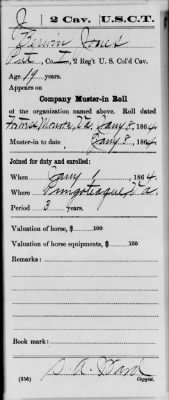 J | 2 Cav. | U.S.C.T.
Edwin Jones
Pvt., Co. I, 2 Reg't U. S. Col'd Cav.
Age 19 years.
Appears on
Company Muster-in Roll
of the organization named above. Roll dated
Fortress Monroe, Va. Jany 8, 1864.
Muster-in to date Jany 8, 1864
Joined for duty and enrolled:
When Jany 1, 1864.
Where Pungoteague, Va.
Period 3 years.
Valuation of horse, $ 100
Valuation of horse equipments, $ 100
Remarks:
Book mark:
S. A. Ward
(356) Copyist.